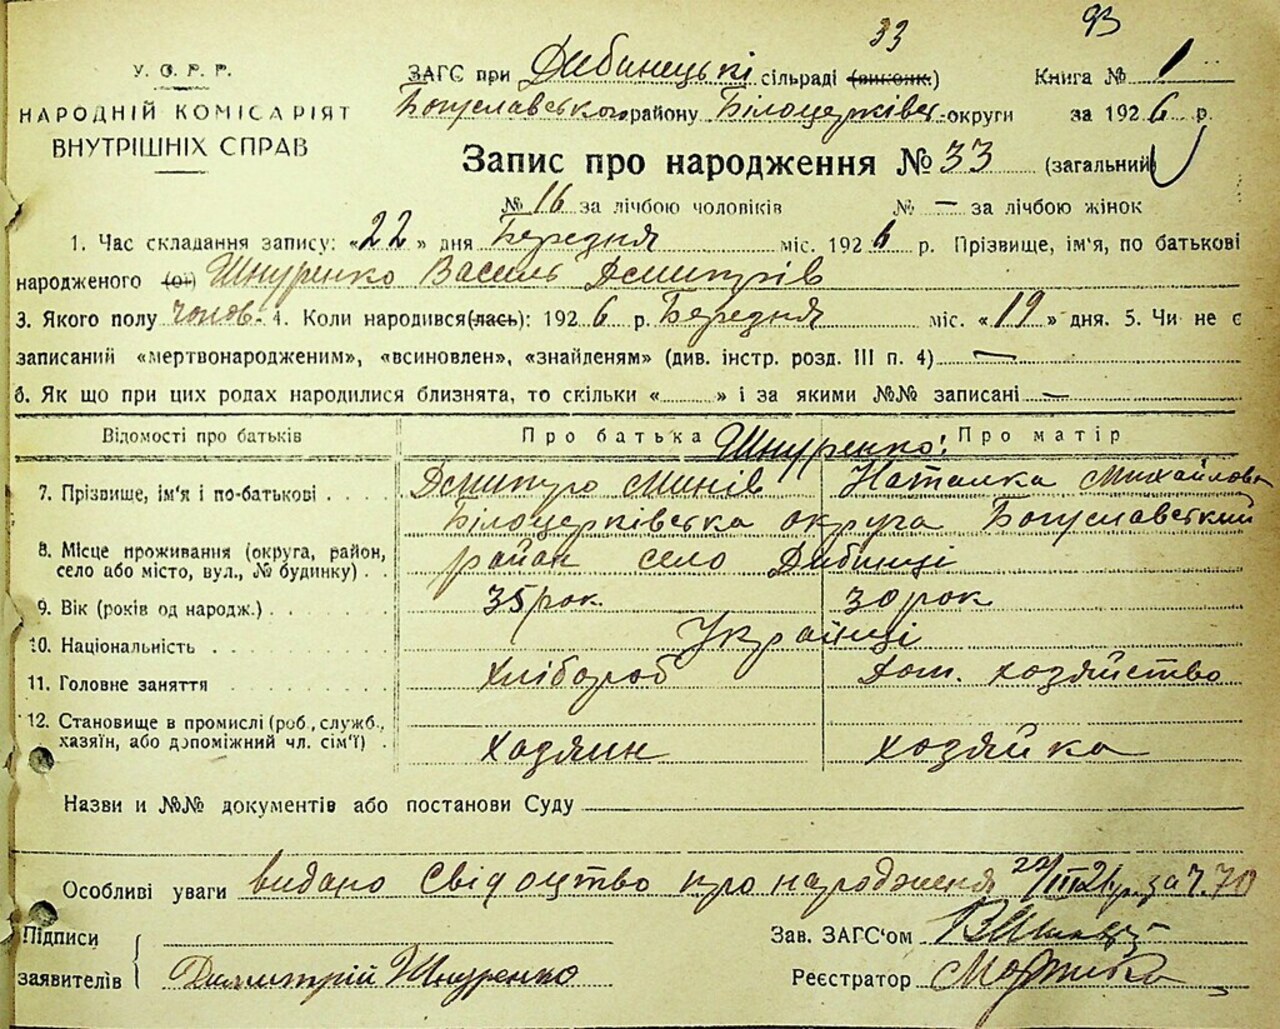 33 93
У. С. Р. Р.
НАРОДНІЙ КОМІСАРІЯТ
ВНУТРІШНІХ СПРАВ
ЗАГС при Дибинецькі сільраді (виконк.) Книга № 1
Богуславського району Білоцерківс. округи за 1926 р.
Запис про народження № 33 (загальний)
№ 16 за лічбою чоловіків № — за лічбою жінок
1. Час складання запису: «22» дня Березня міс. 1926 р. Прізвище, ім'я, по батькові
народженого (ої) Шнуренко Василь Дмитрів
3. Якого полу чолов. 4. Коли народився(лась): 1926 р. Березня міс. «19» дня. 5. Чи не є
записаний «мертвонародженим», «всиновлен», «знайденям» (див. інстр. розд. III п. 4) —
6. Як що при цих родах народилися близнята, то скільки « » і за якими №№ записані —
Відомості про батьків Про батька Про матір
Шнуренко:
7. Прізвище, ім'я і по-батькові Дмитро Минів Наталка Михайлова
Білоцерківська округа Богуславський
8. Місце проживання (округа, район, район село Дибинці
село або місто, вул., № будинку)
9. Вік (років од народж.) 35 рок. 30 рок
10. Національність Українці
11. Головне заняття Хлібороб Дом. хозяйство
12. Становище в промислі (роб., служб.,
хазяїн, або допоміжний чл. сім'ї) Хозяин хозяйка
Назви и №№ документів або постанови Суду
Особливі уваги видано Свідоцтво про народження 22/III 26 р. за ч. 70
Підписи Зав. ЗАГС'ом
заявителів Димитрій Шнуренко Реєстратор